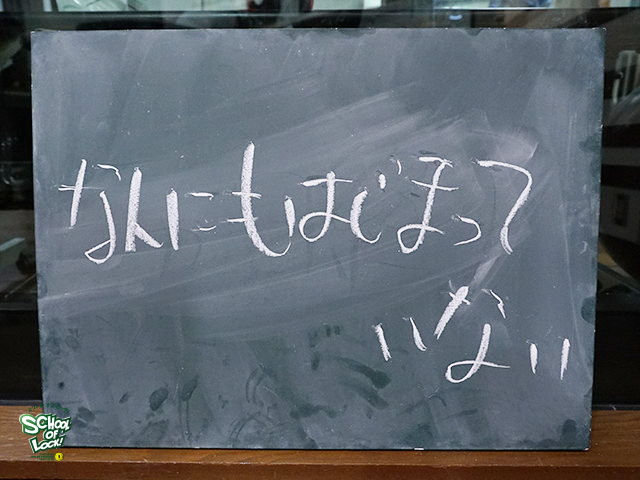 なんにもはじまって
いない
SCHOOL
OF
LOCK!